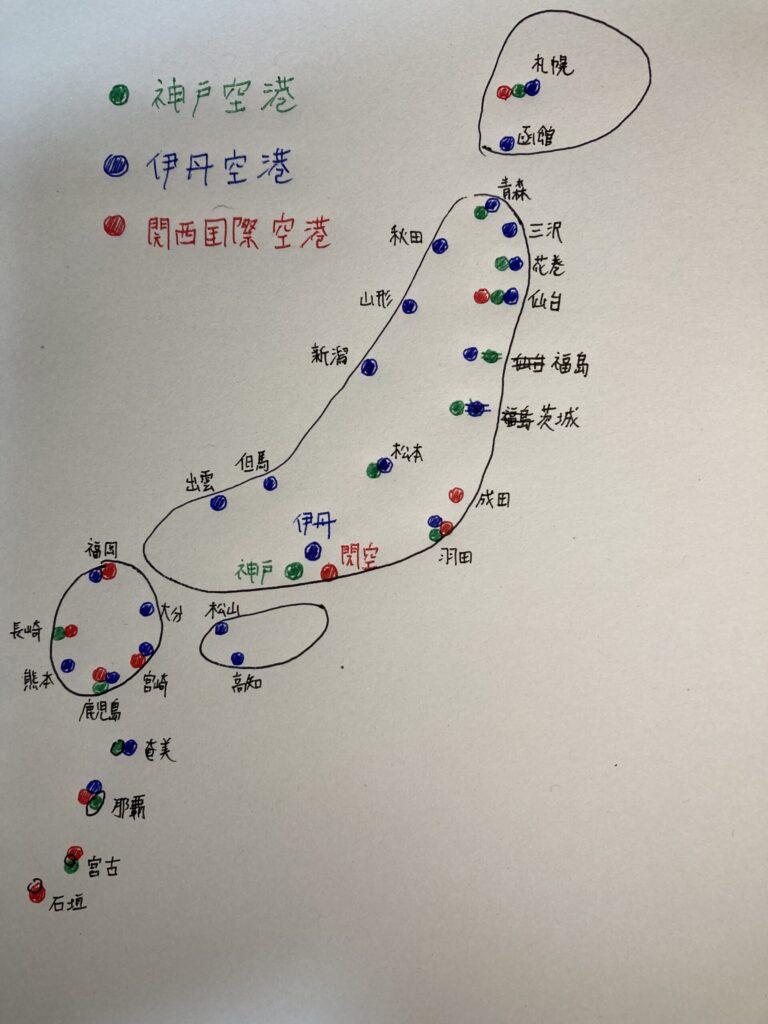 神戸空港
伊丹空港
関西国際空港
札幌
函館
青森
三沢
秋田
花巻
山形
仙台
新潟
仙台 福島
福島 茨城
松本
但馬
出雲
成田
伊丹
神戸
関空
羽田
福岡
大分
松山
長崎
熊本
宮崎
高知
鹿児島
奄美
那覇
宮古
石垣